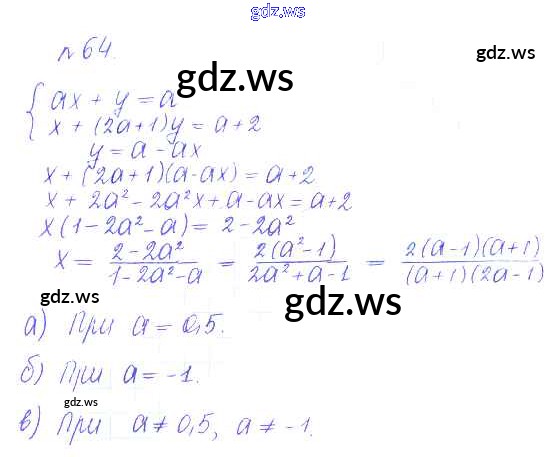 gdz.ws
gdz.ws
№ 64.
gdz.ws
{ ax + y = a
x + (2a+1)y = a+2
y = a - ax
x + (2a+1)(a-ax) = a+2
x + 2a² - 2a²x + a - ax = a+2
x(1-2a²-a) = 2-2a²
x = (2-2a²)/(1-2a²-a) = 2(a²-1)/(2a²+a-1) = 2(a-1)(a+1)/((a+1)(2a-1))
gdz.ws
gdz.ws
а) При a = 0,5.
б) При a = -1.
gdz.ws
в) При a ≠ 0,5, a ≠ -1.